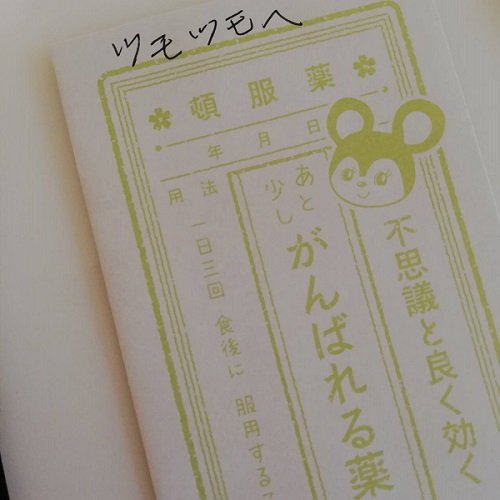 ツモツモへ
頓服薬
年 月 日
不思議と良く効く
あと少し
がんばれる薬
用法 一日三回 食後に 服用する